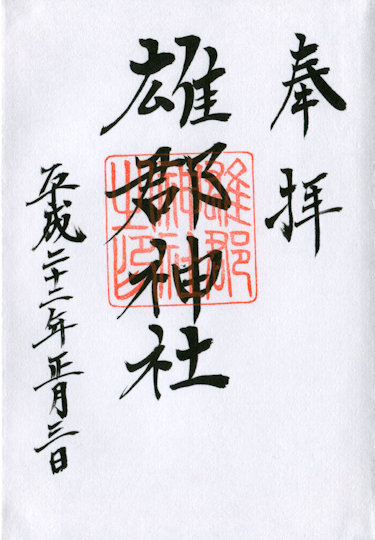 奉拝
雄郡神社
雄郡
神社
之印
平成二十二年正月三日